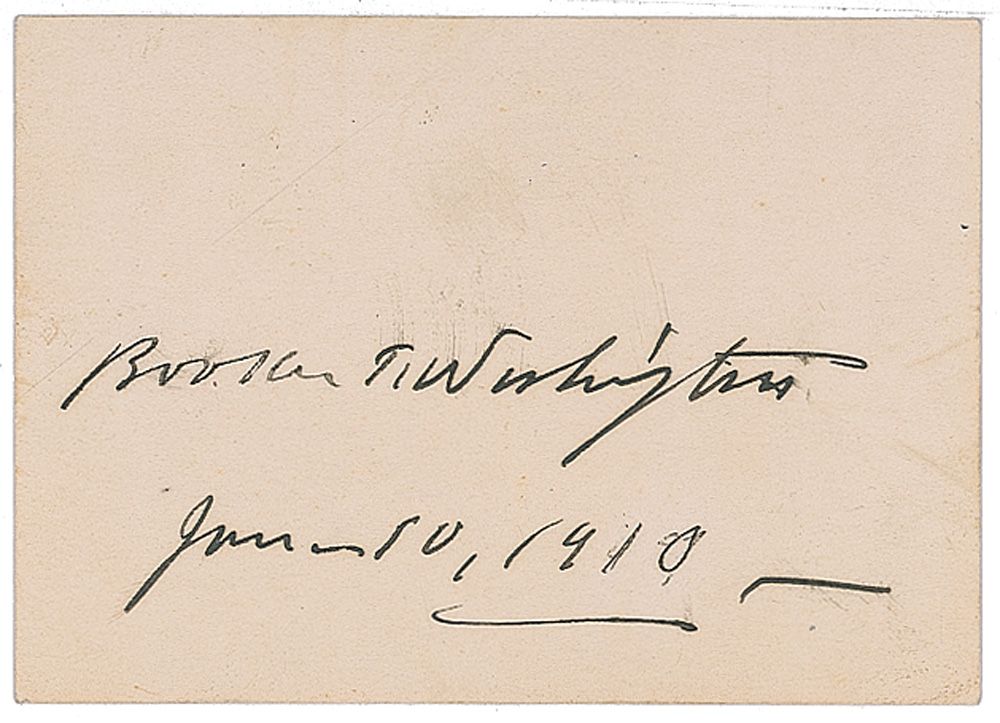 Booker T. Washington
June 10, 1910